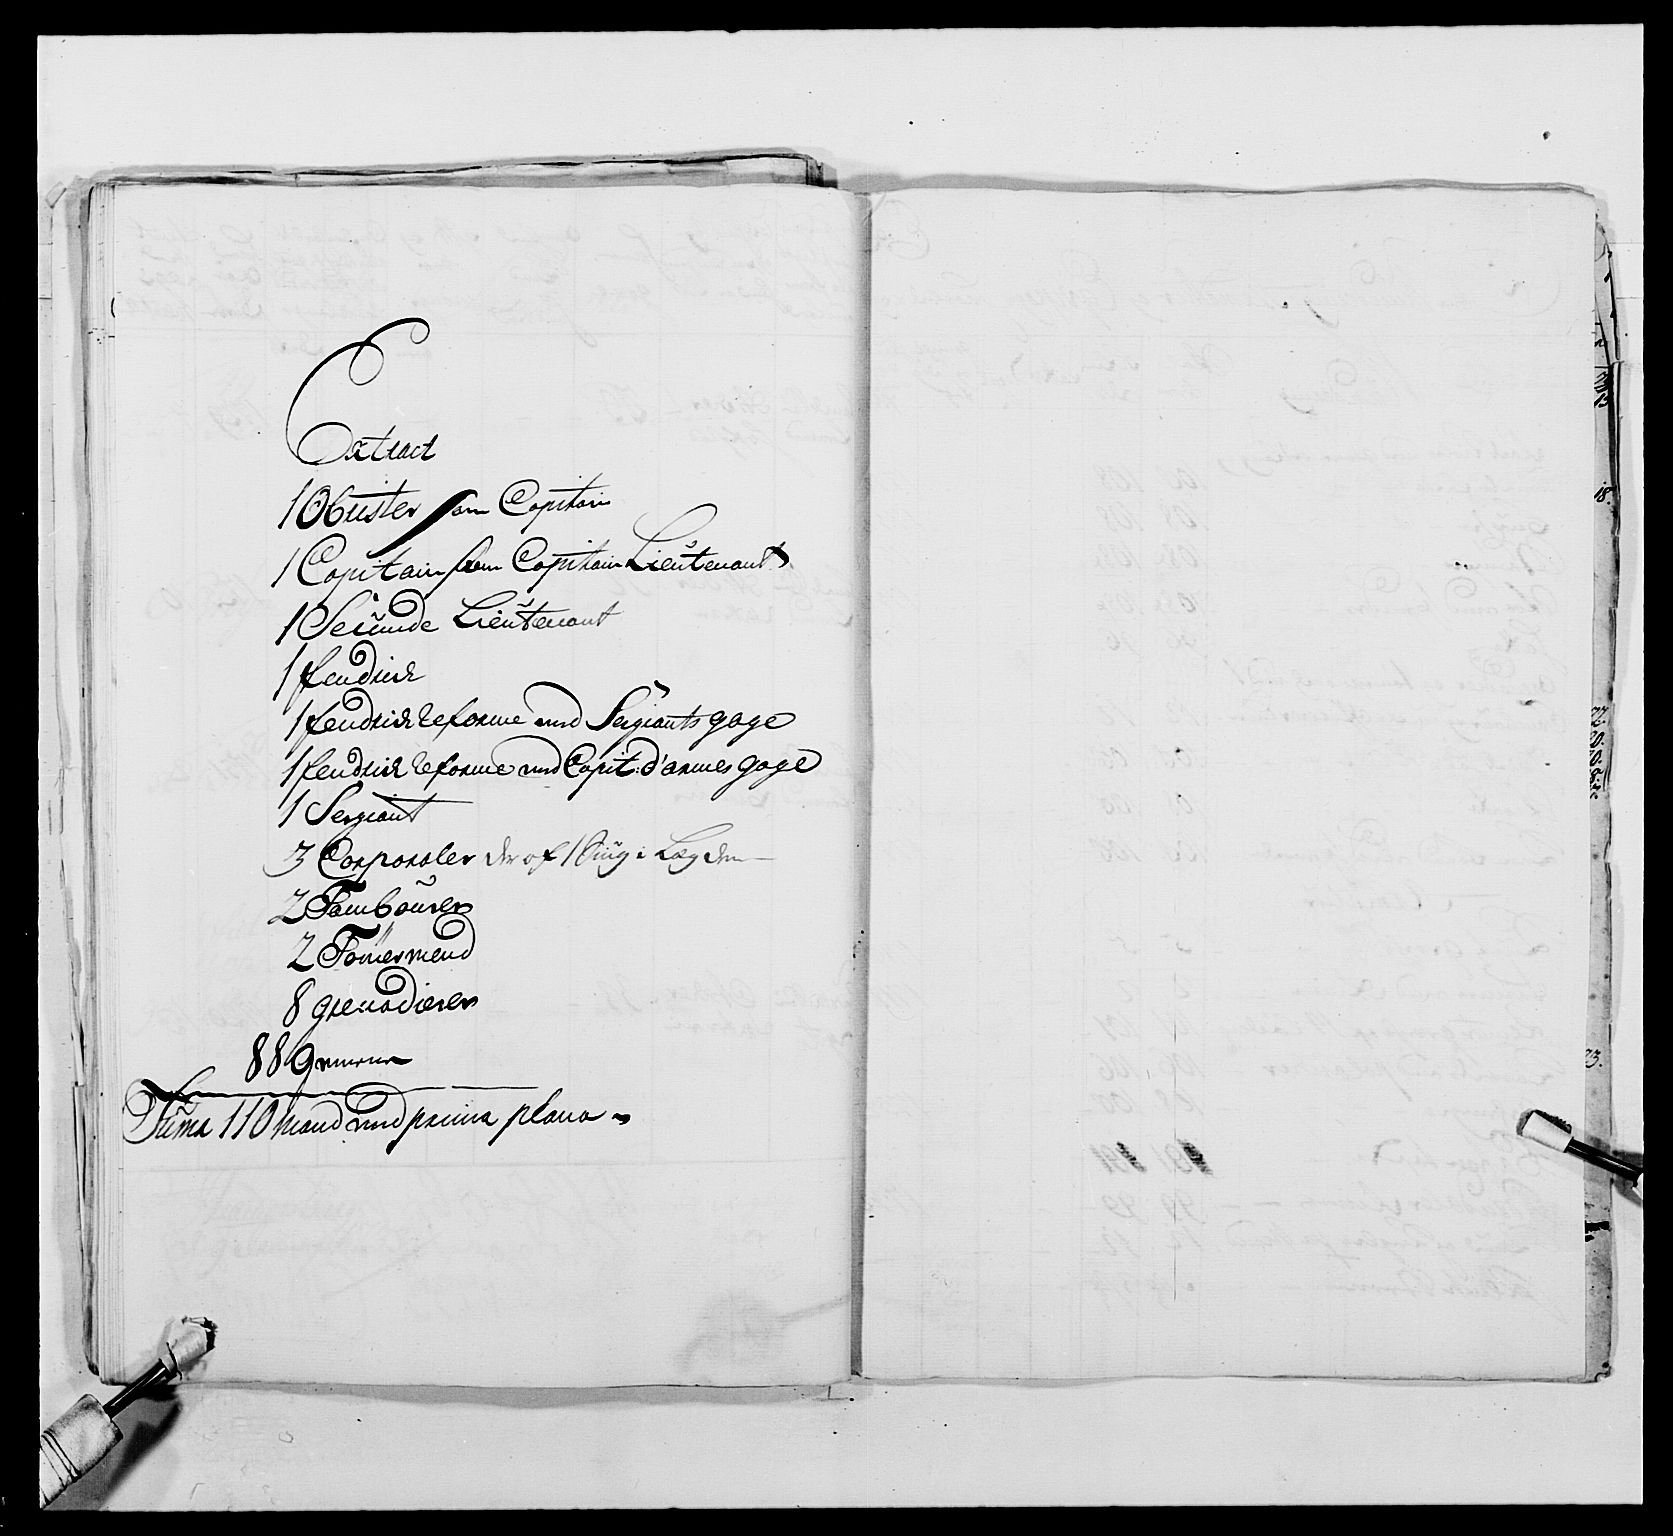 Extract
1 Obrister som Capitain
1 Capitain som Capitain Lieutenant
1 Secunde Lieutenant
1 fendrich
1 fendrich reforme med Sergiants gage
1 fendrich reforme med Capit: d'armes gage
1 Sergiant
3 Corporaler der af 1 Siug i Læyden
2 Tambourer
2 Tömermend
8 grenadierer
88 Gemeene
Suma 110 mand med prima plana
18.